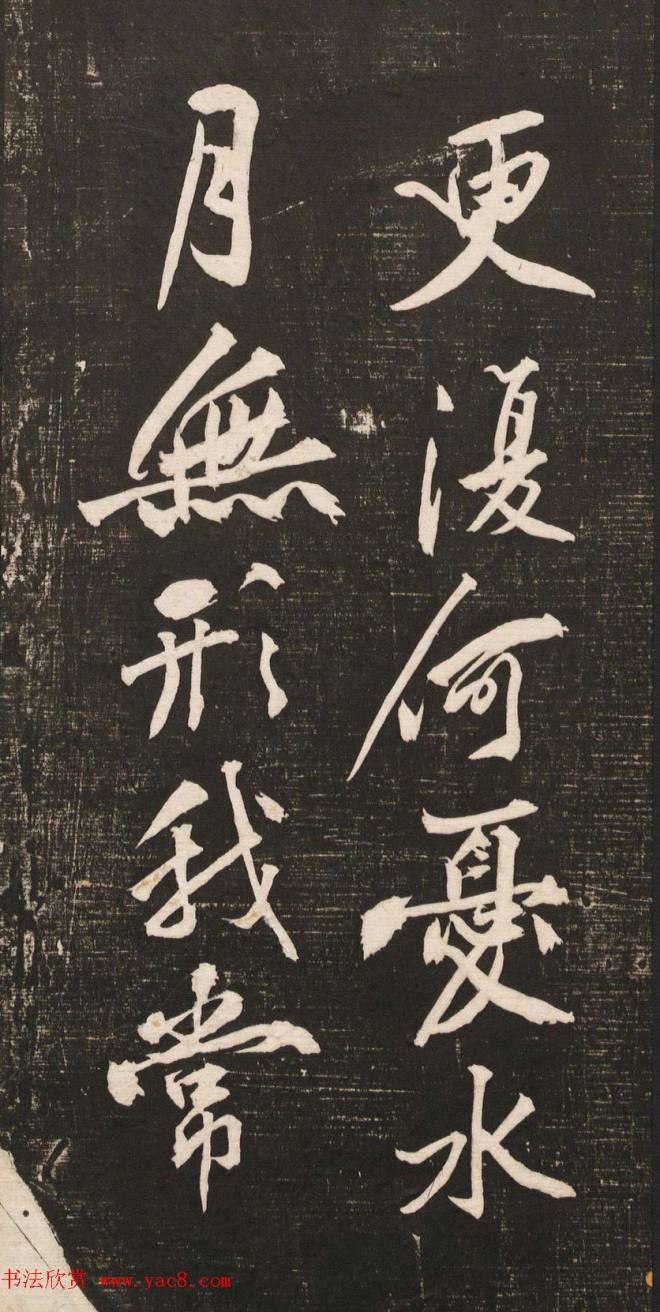 更復何憂水
月無形我常
书法欣赏 www.yac8.com